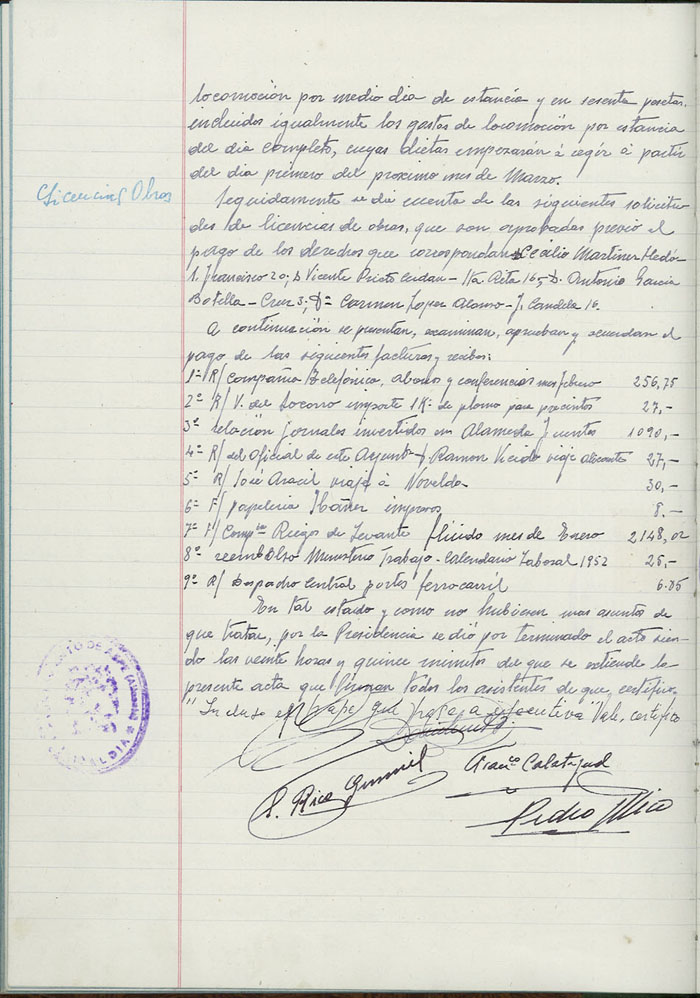 locomoción por medio dia de estancia y en sesenta pesetas.
incluidos igualmente los gastos de locomoción por estancia
del dia completo, cuyas dietas empezarán á regir á partir
del dia primero del proximo mes de Marzo.
Licencias Obras
Seguidamente se dió cuenta de las siguientes solicitu
des de licencias de obras, que son aprobadas previo el
pago de los derechos que correspondan Cecilio Martinez
S. Francisco 20; D Vicente Prieto Cerdan - Sta Rita 16; D. Antonio Garcia
Botella - Cruz 3; Dª Carmen Lopez Alonso - J. Candela 16.
A continuación se presentan, examinan, aprueban y acuerdan el
pago de las siguientes facturas y recibos:
1º R/ Compañia Telefónica, abonos y conferencias mes febrero 256,75
2º R/ V. del Socorro importe 1 K. de plomo para precintos 27,-
3º relación jornales invertidos en Alameda y fuentes 1090,-
4º R/ del Oficial de este Ayuntº Ramon viaje Alicante 27,-
5º R/ José Aracil viaje á Novelda 30,-
6º F/ papeleria Ibáñez impresos 8.-
7º F/ Compñia Riegos de Levante fluido mes de Enero 2148,02
8º reembolso Ministerio Trabajo - Calendario Laboral 1952 25,-
9º R/ Despacho Central portes ferrocarril 6.05
En tal estado y como no hubiesen mas asuntos de
que tratar, por la Presidencia se dió por terminado el acto sien-
do las veinte horas y quince minutos de que se extiende la
presente acta que firman todos los asistentes de que, certifico.
"Incluso el que pase a ejecutiva" Vale, certifico
Franco Calatayud
Rico
Pedro Mico
ASPE (Alicante)
ALCALDIA